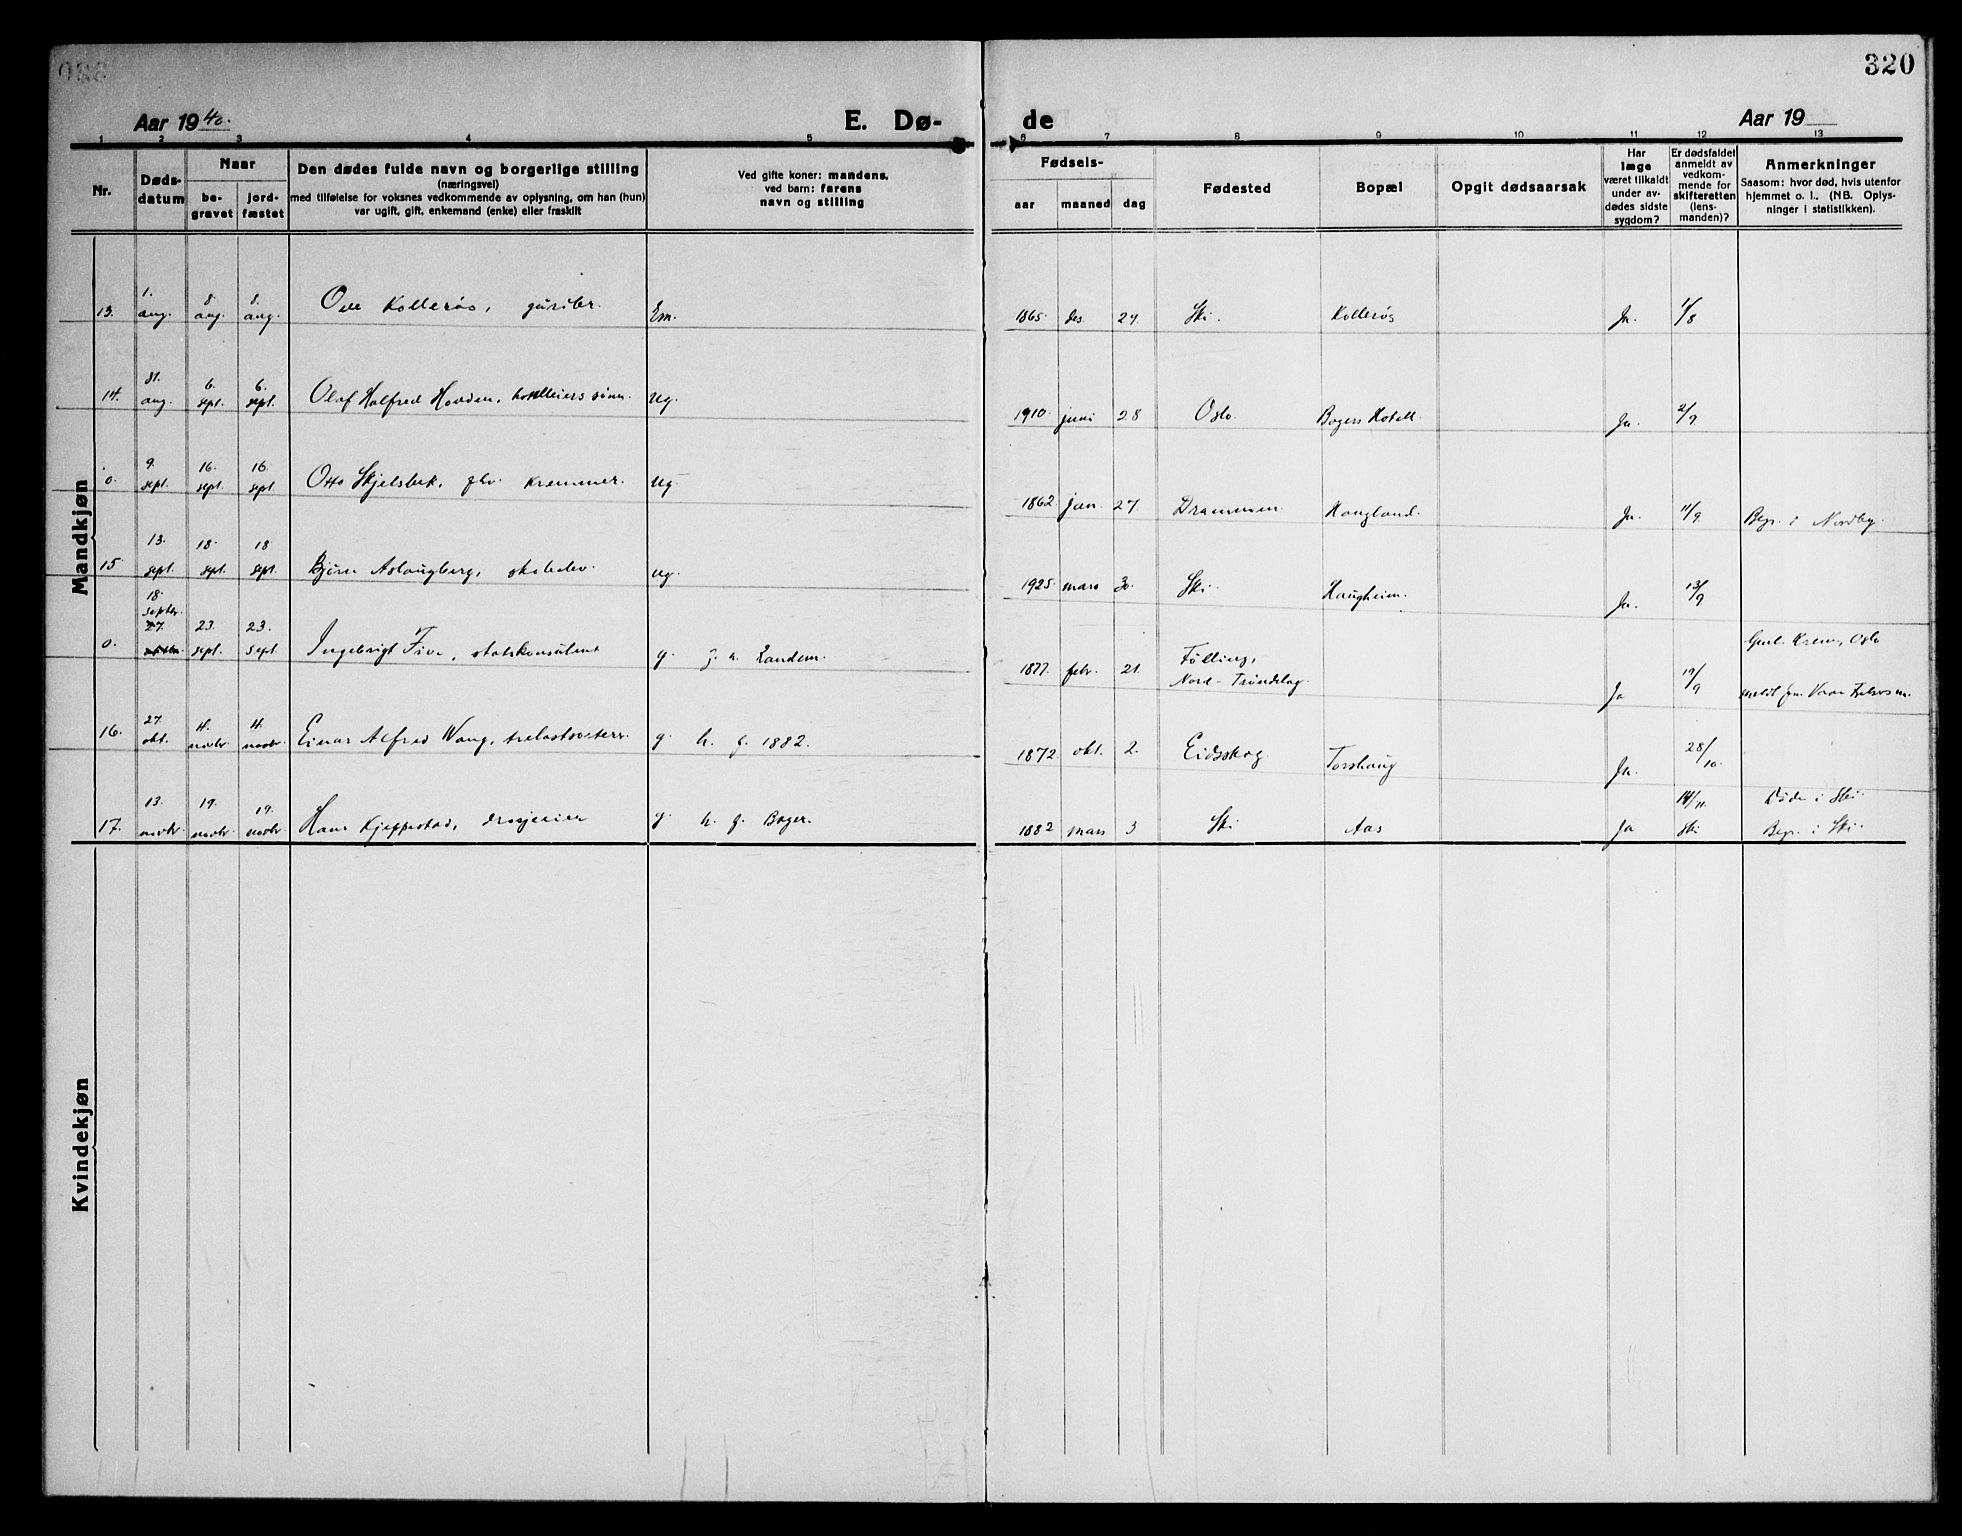 320
Aar 1940.
E. Dø-
de
Aar 19
1 2 3 4 5 6 7 8 9 10 11 12 13
Nr.
Døds-
datum
Naar
be-
gravet
jord-
fæstet
Den dødes fulde navn og borgerlige stilling
(næringsvei)
med tilføielse for voksnes vedkommende av oplysning, om han (hun)
var ugift, gift, enkemand (enke) eller fraskilt
Ved gifte koner: mandens,
ved barn: farens
navn og stilling
Fødsels-
aar
maaned
dag
Fødested
Bopæl
Opgit dødsaarsak
Har
læge
været tilkaldt
under av-
dødes sidste
sygdom?
Er dødsfaldet
anmeldt av
vedkom-
mende for
skifteretten
(lens-
manden)?
Anmerkninger
Saasom: hvor død, hvis utenfor
hjemmet o. l., (NB. Oplys-
ninger i statistikken).
Mandkjøn
13. 1. aug. 8. aug. 8. aug. Ole Kollerøs, gårdbr. Em. 1865. des. 29. Ski. Kollerøs Ja. 1/8
14. 31. aug. 6. sept. 6. sept. Olaf Halfred Hovden, hotelleiers sønn. ug. 1910. juni 28 Oslo. Bogers Hotell. Ja. 2/9
0. 9. sept. 16. sept. 16. sept. Otto Skjelsbek, glv. kremmer. ug. 1862. jan. 27. Drammen. Haugland. Ja. 11/9 Begr. i Nordby.
15 13. sept. 18. sept. 18 sept. Bjørn Aslaugberg, skoleelev. ug. 1925. mars 30. Ski. Haugheim. Ja. 13/9
0. 18. septbr. 23. sept. 23. sept. Ingebrigt Five, statskonsulent g. Landem. 1877. febr. 21. Følling, Nord-Trøndelag. Ja 19/9 Krem, Oslo
16. 27. okt. 4. novbr. 4. novbr. Einar Alfred Wang, g. h. f. 1882. 1872. okt. 2. Eidsskog. Torshaug Ja. 28/10.
17. 13. novbr. 19. novbr. 19. novbr. Hans Kjeppestad, drosjeeier g. h. f. Boger. 1882 mars 3 Ski Aas Ja 14/11. Ski Døde i Ski. Begr. i Ski.
Kvindekjøn